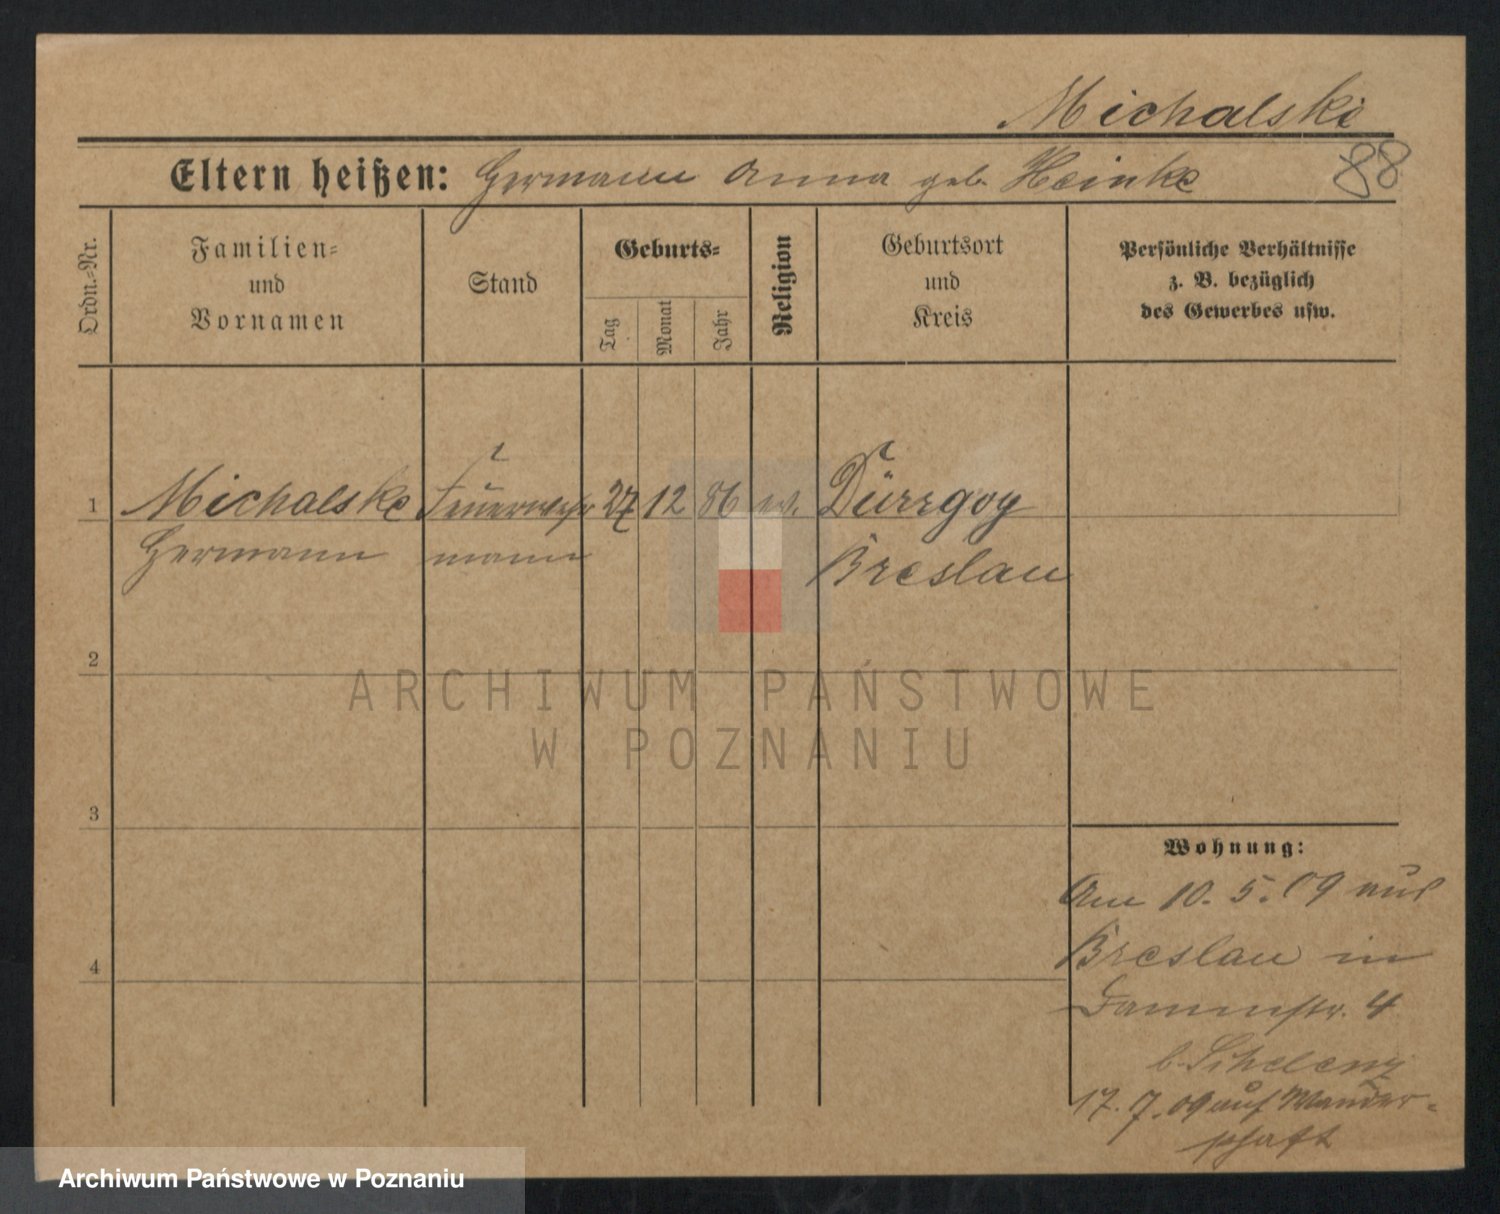 Michalski
Eltern heißen: Hermann Anna geb. Heinke
88
Ordn.-Nr.
Familien-
und
Vornamen
Stand
Geburts-
Tag
Monat
Jahr
Religion
Geburtsort
und
Kreis
Persönliche Verhältnisse
z. B. bezüglich
des Gewerbes usw.
1 Michalske Feuerwehr 27 12 86 ev. Dürrgoy
Hermann mann Breslau
2
ARCHIWUM PAŃSTWOWE
W POZNANIU
3
Wohnung:
Am 10. 5. 09 aus
Breslau in
4
Dammstr. 4
b. Schelenz
17. 7. 09 auf Wander-
schaft
Archiwum Państwowe w Poznaniu